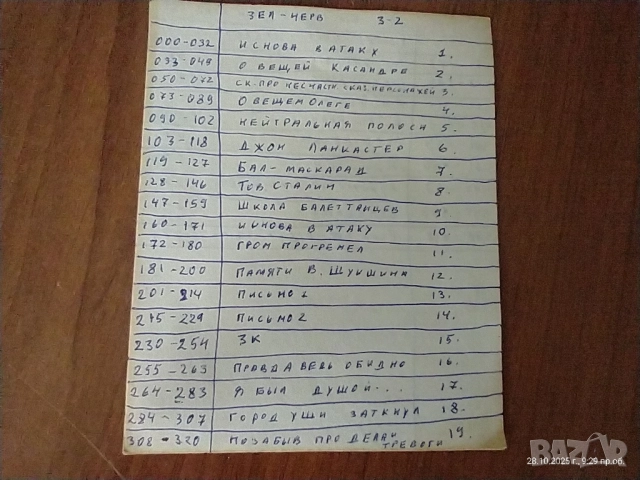 ЗЕЛ-ЧЕРВ 3-2
000-032 И СНОВА В АТАКУ 1.
033-049 О ВЕЩЕЙ КАСАНДРЕ 2.
050-072 СК. ПРО НЕСЧАСТН. СКАЗ. ПЕРСОНАЖЕЙ 3.
073-089 О ВЕЩЕМ ОЛЕГЕ 4.
090-102 НЕЙТРАЛЬНАЯ ПОЛОСИ 5.
103-118 ДЖОН ЛАНКАСТЕР 6.
119-127 БАЛ-МАСКАРАД 7.
128-146 ТОВ. СТАЛИН 8.
147-159 ШКОЛА БАЛЕТ ТАНЦЕВ 9.
160-171 И СНОВА В АТАКУ 10.
172-180 ГРОМ ПРОГРЕМЕЛ 11.
181-200 ПАМЯТИ В. ШУКШИНА 12.
201-214 ПИСЬМО 1 13.
215-229 ПИСЬМО 2 14.
230-254 ЗК 15.
255-263 ПРАВДА ВЕДЬ ОБИДНО 16.
264-283 Я БЫЛ ДУШОЙ... 17.
284-307 ГОРОД УШИ ЗАТКНУЛ 18.
308-320 ПОЗАБЫВ ПРО ДЕЛАИ ТРЕВОГИ 19.
28.10.2025 г., 9:29 пр.об.
BAZAR